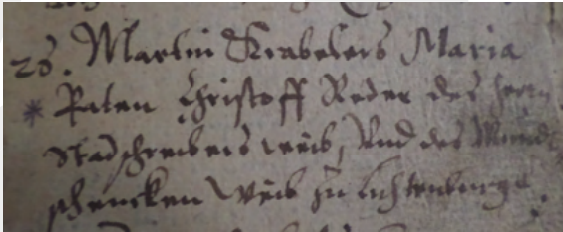 25. Martin Krabelers Maria
* Paten Christoff Reder des herrn
Stadschreibers weib, Und des Mund
schencken Weib zu Lichtenburgk.